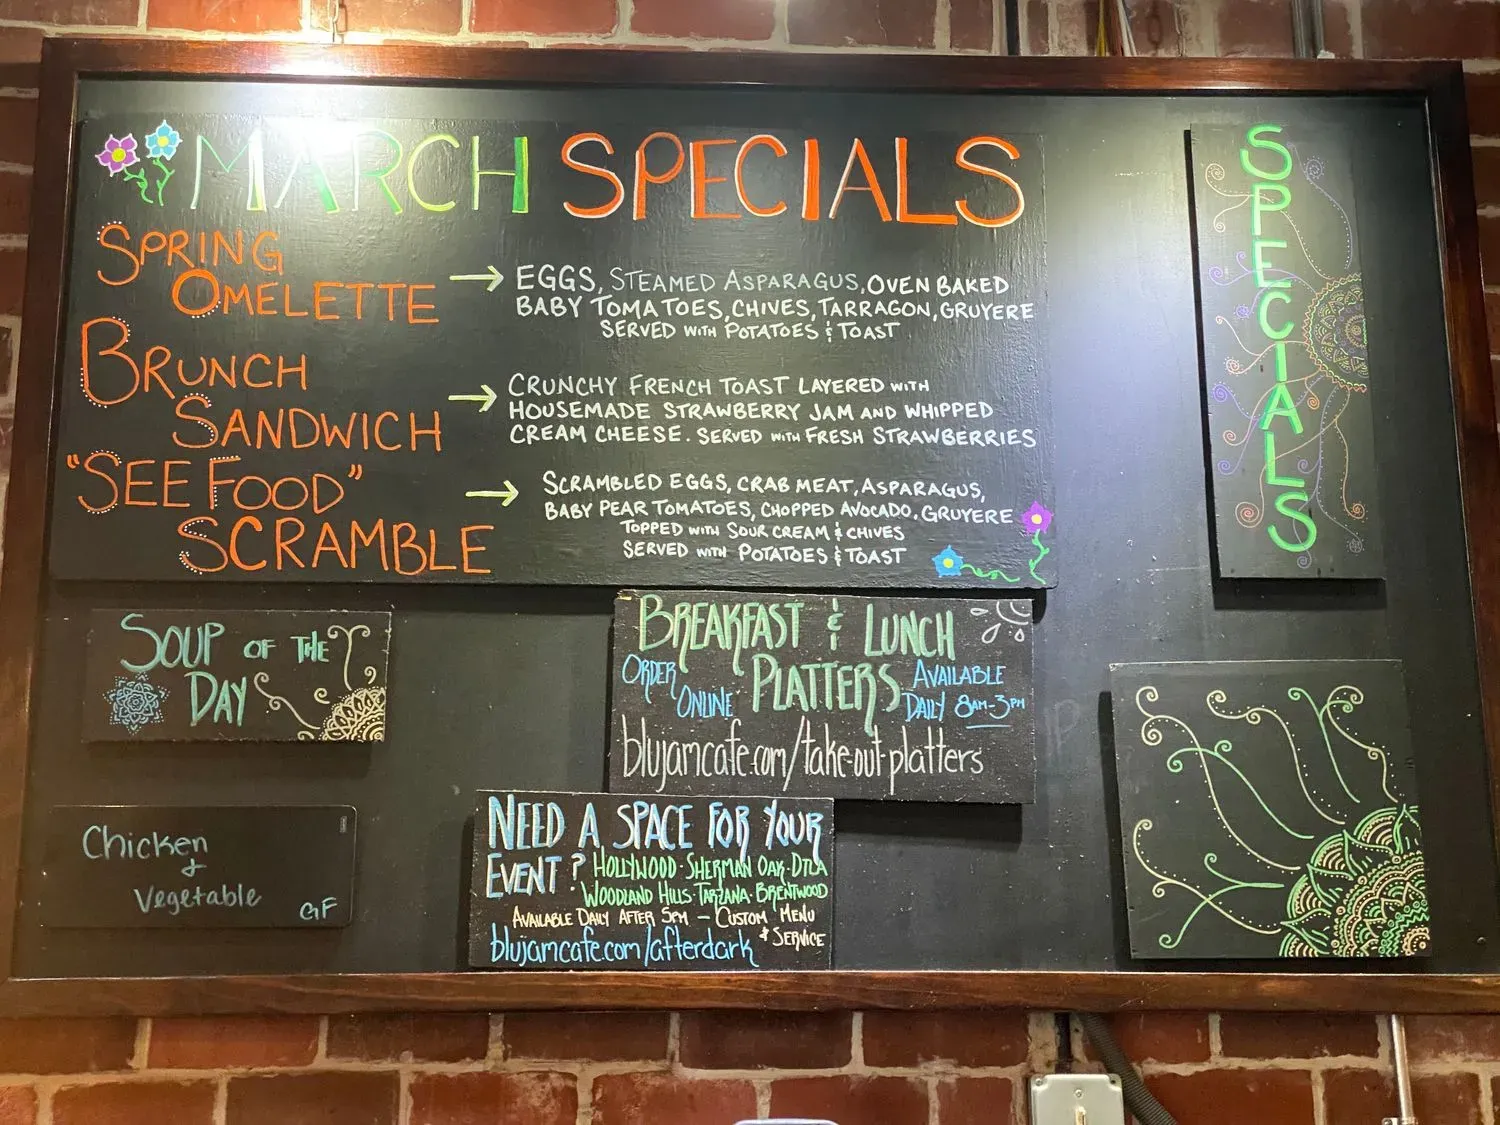 MARCH SPECIALS
SPRING
OMELETTE
EGGS, STEAMED ASPARAGUS, OVEN BAKED
BABY TOMATOES, CHIVES, TARRAGON, GRUYERE
SERVED WITH POTATOES & TOAST
BRUNCH
SANDWICH
CRUNCHY FRENCH TOAST LAYERED WITH
HOUSEMADE STRAWBERRY JAM AND WHIPPED
CREAM CHEESE. SERVED WITH FRESH STRAWBERRIES
"SEE FOOD"
SCRAMBLE
SCRAMBLED EGGS, CRAB MEAT, ASPARAGUS,
BABY PEAR TOMATOES, CHOPPED AVOCADO, GRUYERE
TOPPED WITH SOUR CREAM & CHIVES
SERVED WITH POTATOES & TOAST
SPECIALS
SOUP OF THE
DAY
Chicken
&
Vegetable
GF
BREAKFAST & LUNCH
PLATTERS
ORDER
ONLINE
AVAILABLE
DAILY 8AM-3PM
blujamcafe.com/take-out-platters
NEED A SPACE FOR YOUR
EVENT? HOLLYWOOD·SHERMAN OAK·DTLA
WOODLAND HILLS·TARZANA·BRENTWOOD
AVAILABLE DAILY AFTER 5PM – CUSTOM MENU
& SERVICE
blujamcafe.com/afterdark